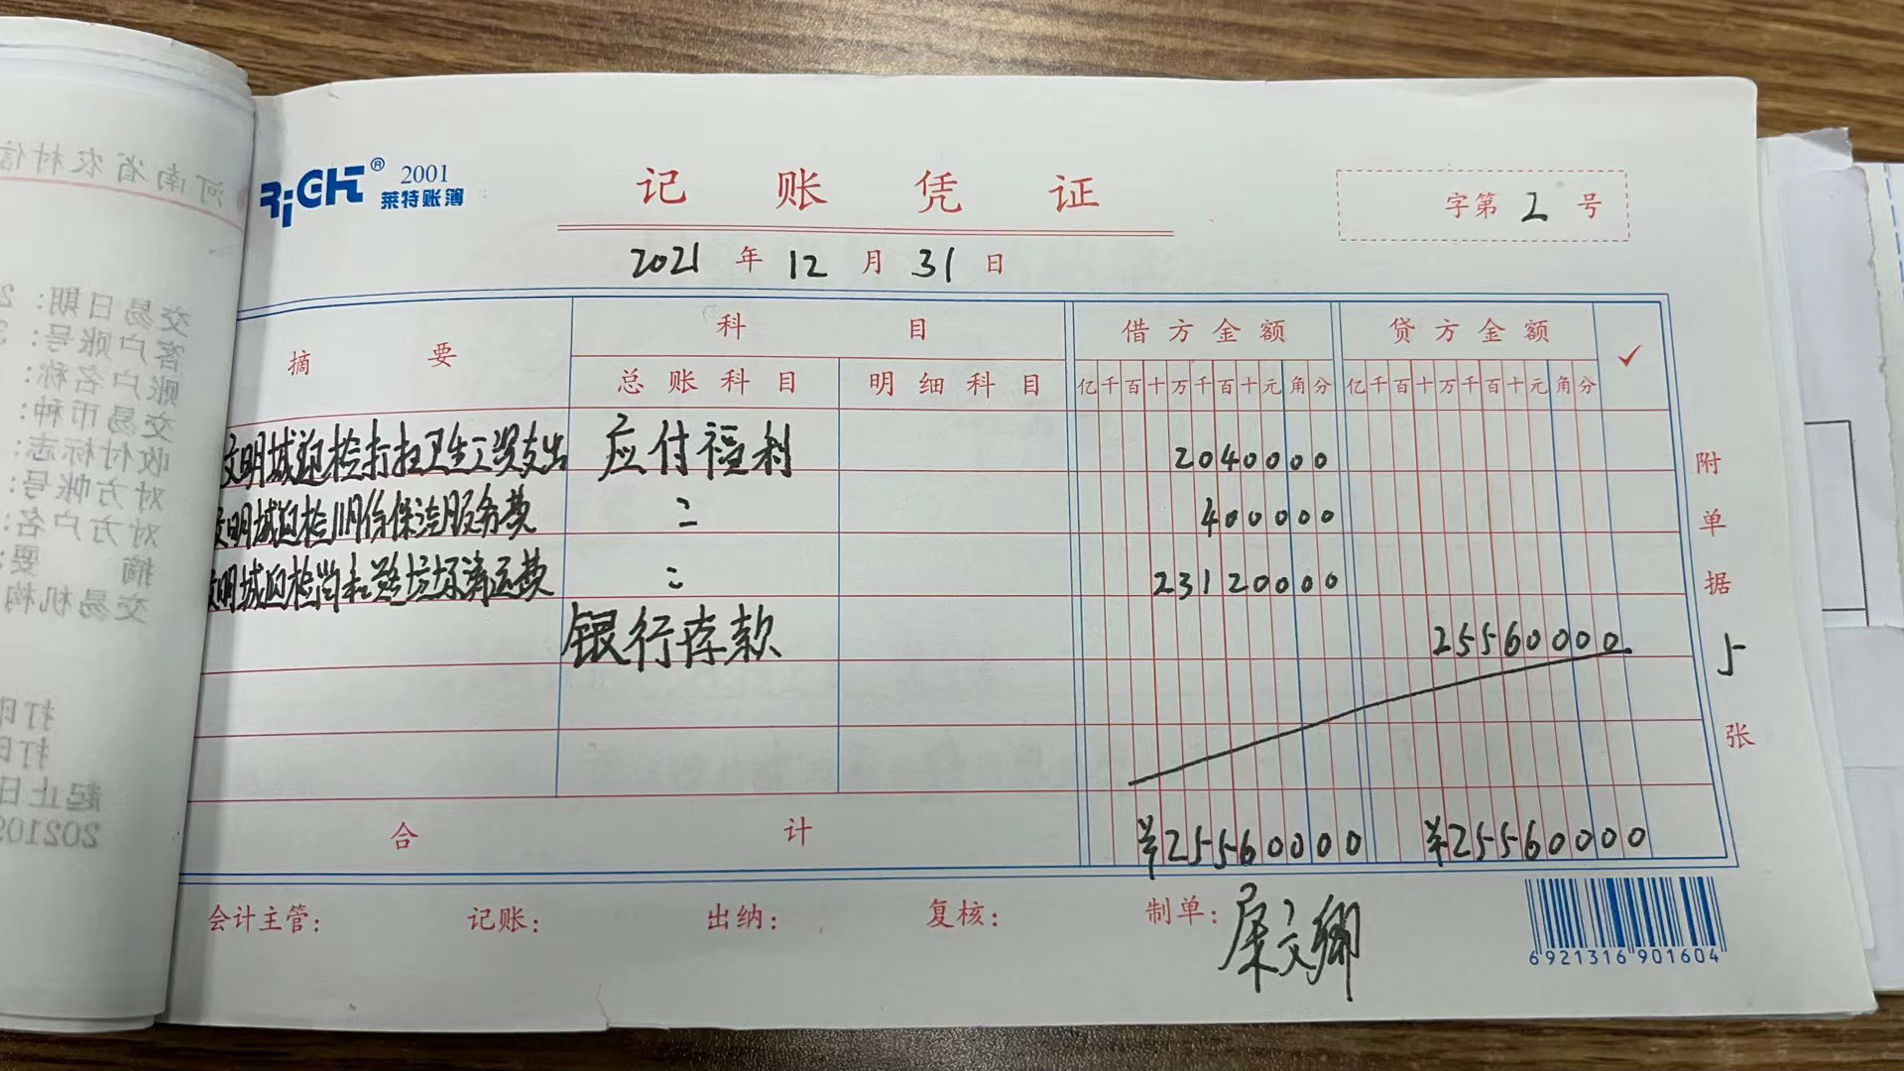 RiGHT® 2001
莱特账簿
记账凭证
字第 2 号
2021 年 12 月 31 日
摘要 科目 借方金额 贷方金额 ✓
总账科目 明细科目 亿千百十万千百十元角分 亿千百十万千百十元角分
文明城迎检打扫卫生工资支出 应付福利 2040000
文明城迎检11月份保洁服务费 〃 400000
文明城迎检垃圾清运费 〃 23120000
银行存款 25560000
合计 ¥25560000 ¥25560000
附单据 5 张
会计主管: 记账: 出纳: 复核: 制单: 屈文卿
6921316901604
河南省农村信
交易日期: 2
客户账号: 3
账户名称:
交易币种:
收付标志:
对方帐号:
对方户名:
摘 要:
交易机构
打印
打印
起止日
202109